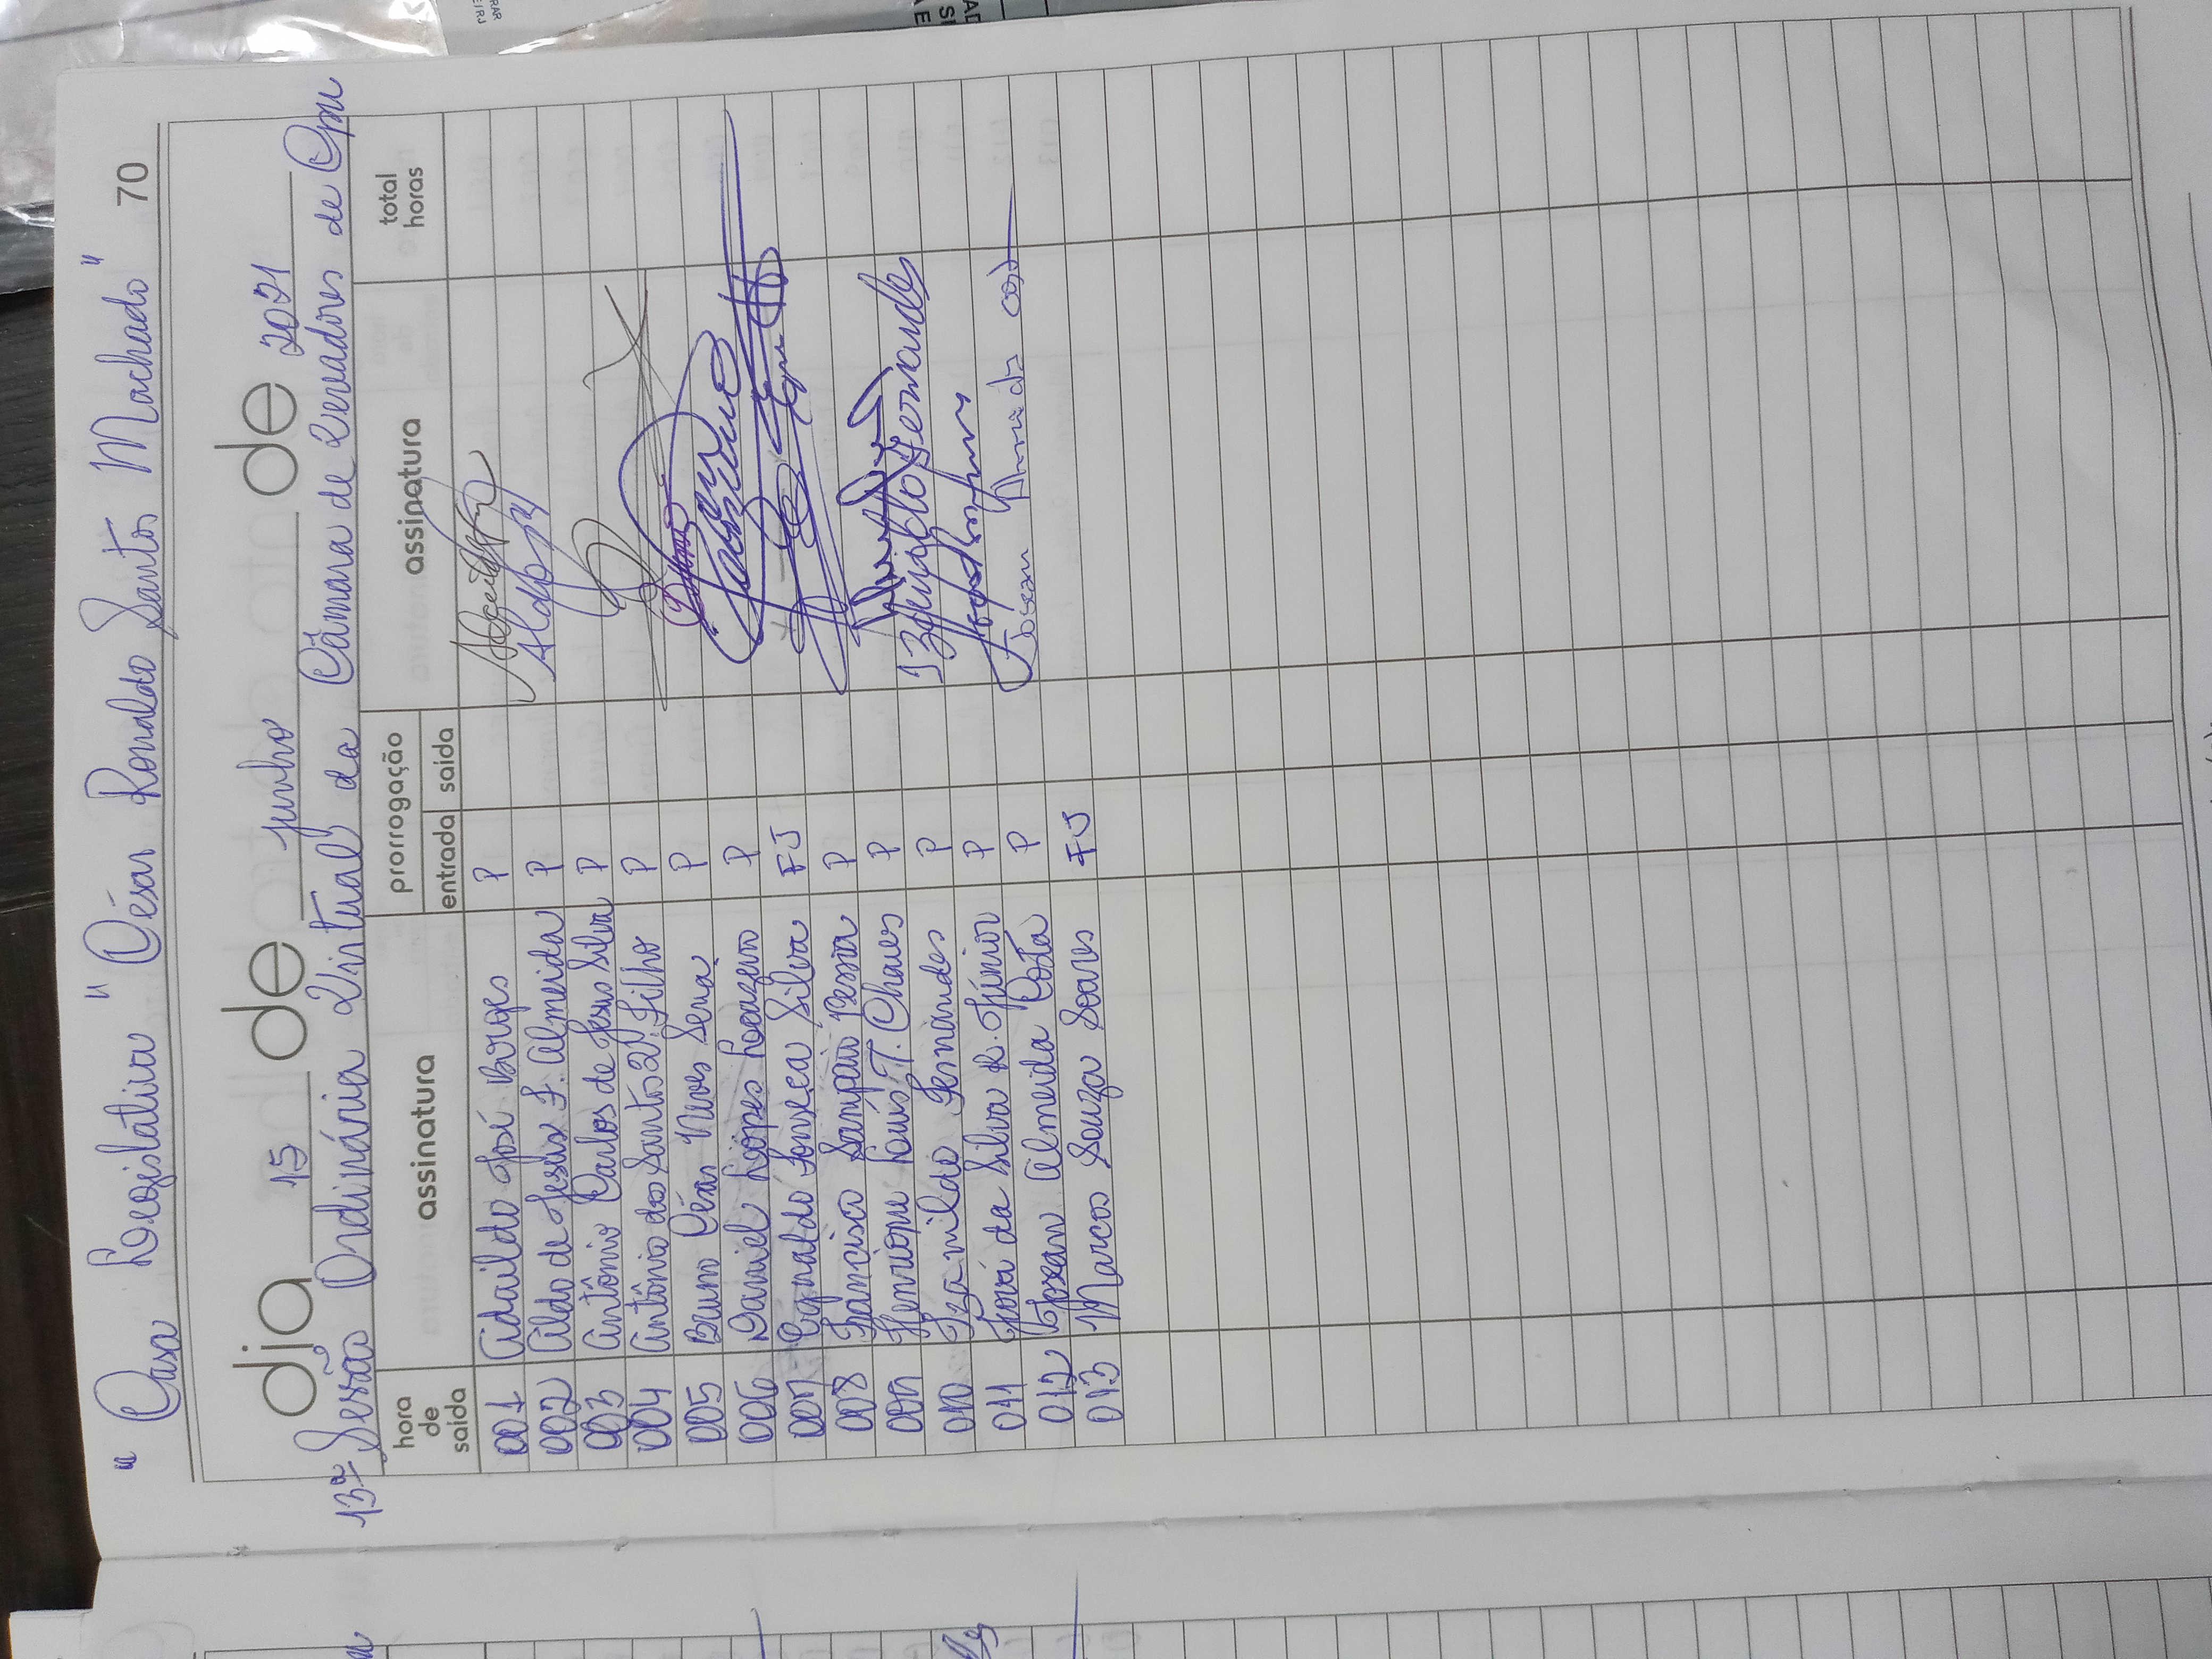 " Casa Legislativa " César Ronaldo Santos Machado " 70
dia 15 de junho de 2021
13ª Sessão Ordinária Virtual da Câmara de Vereadores de Cpm
hora de saída assinatura prorrogação entrada saída assinatura total horas
001 Adaildo José Borges P
002 Aldo de Jesus F. Almeida P
003 Antônio Carlos de Jesus Silva P
004 Antônio dos Santos Filho P
005 Bruno César Neves Sena P
006 Daniel Lopes P
007 Egnaldo Fonseca Silva FJ
008 Francisco Sampaio P
009 Henrique Luís T. Chaves P
010 Izamildo Fernandes P Izamildo Fernandes
011 José da Silva R. Júnior P
012 Josean Almeida Costa P Josean Almeida
013 Marcos Souza Soares FJ